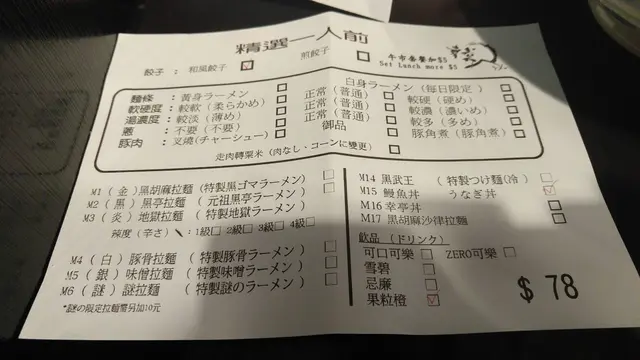 精選一人前
餃子 : 和風餃子 ☑ 煎餃子 □ 午市套餐加$5
Set Lunch more $5
麵條 : 黃身ラーメン □ 白身ラーメン (毎日限定) □
軟硬度 : 較軟 (柔らかめ) □ 正常 (普通) □ 較硬 (硬め) □
湯濃度 : 較淡 (薄め) □ 正常 (普通) □ 較濃 (濃いめ) □
蔥 : 不要 (不要) □ 正常 (普通) □ 較多 (多め) □
豚肉 : 叉燒(チャーシュー) □ 御品 □ 豚角煮 (豚角煮) □
走肉轉粟米 (肉なし、コーンに變更) □
M1 ( 金 ) 黒胡麻拉麵 (特製黒ゴマラーメン) □
M2 ( 黒 ) 黒亭拉麵 ( 元祖黒亭ラーメン ) □
M3 ( 炎 ) 地獄拉麵 ( 特製地獄ラーメン )
辣度 (辛さ) : 1級□ 2級□ 3級□ 4級□
M4 ( 白 ) 豚骨拉麵 ( 特製豚骨ラーメン ) □
M5 ( 銀 ) 味噌拉麵 ( 特製味噌ラーメン ) □
M6 ( 謎 ) 謎拉麵 ( 特製謎のラーメン ) □
*謎の限定拉麵需另加10元
M14 黒武王 ( 特製つけ麵(冷) □
M15 鰻魚丼 うなぎ丼 ☑
M16 幸亭丼 □
M17 黒胡麻沙律拉麵 □
飲品 (ドリンク)
可口可樂 □ ZERO可樂 □
雪碧 □
忌廉 □
果粒橙 ☑
$ 78